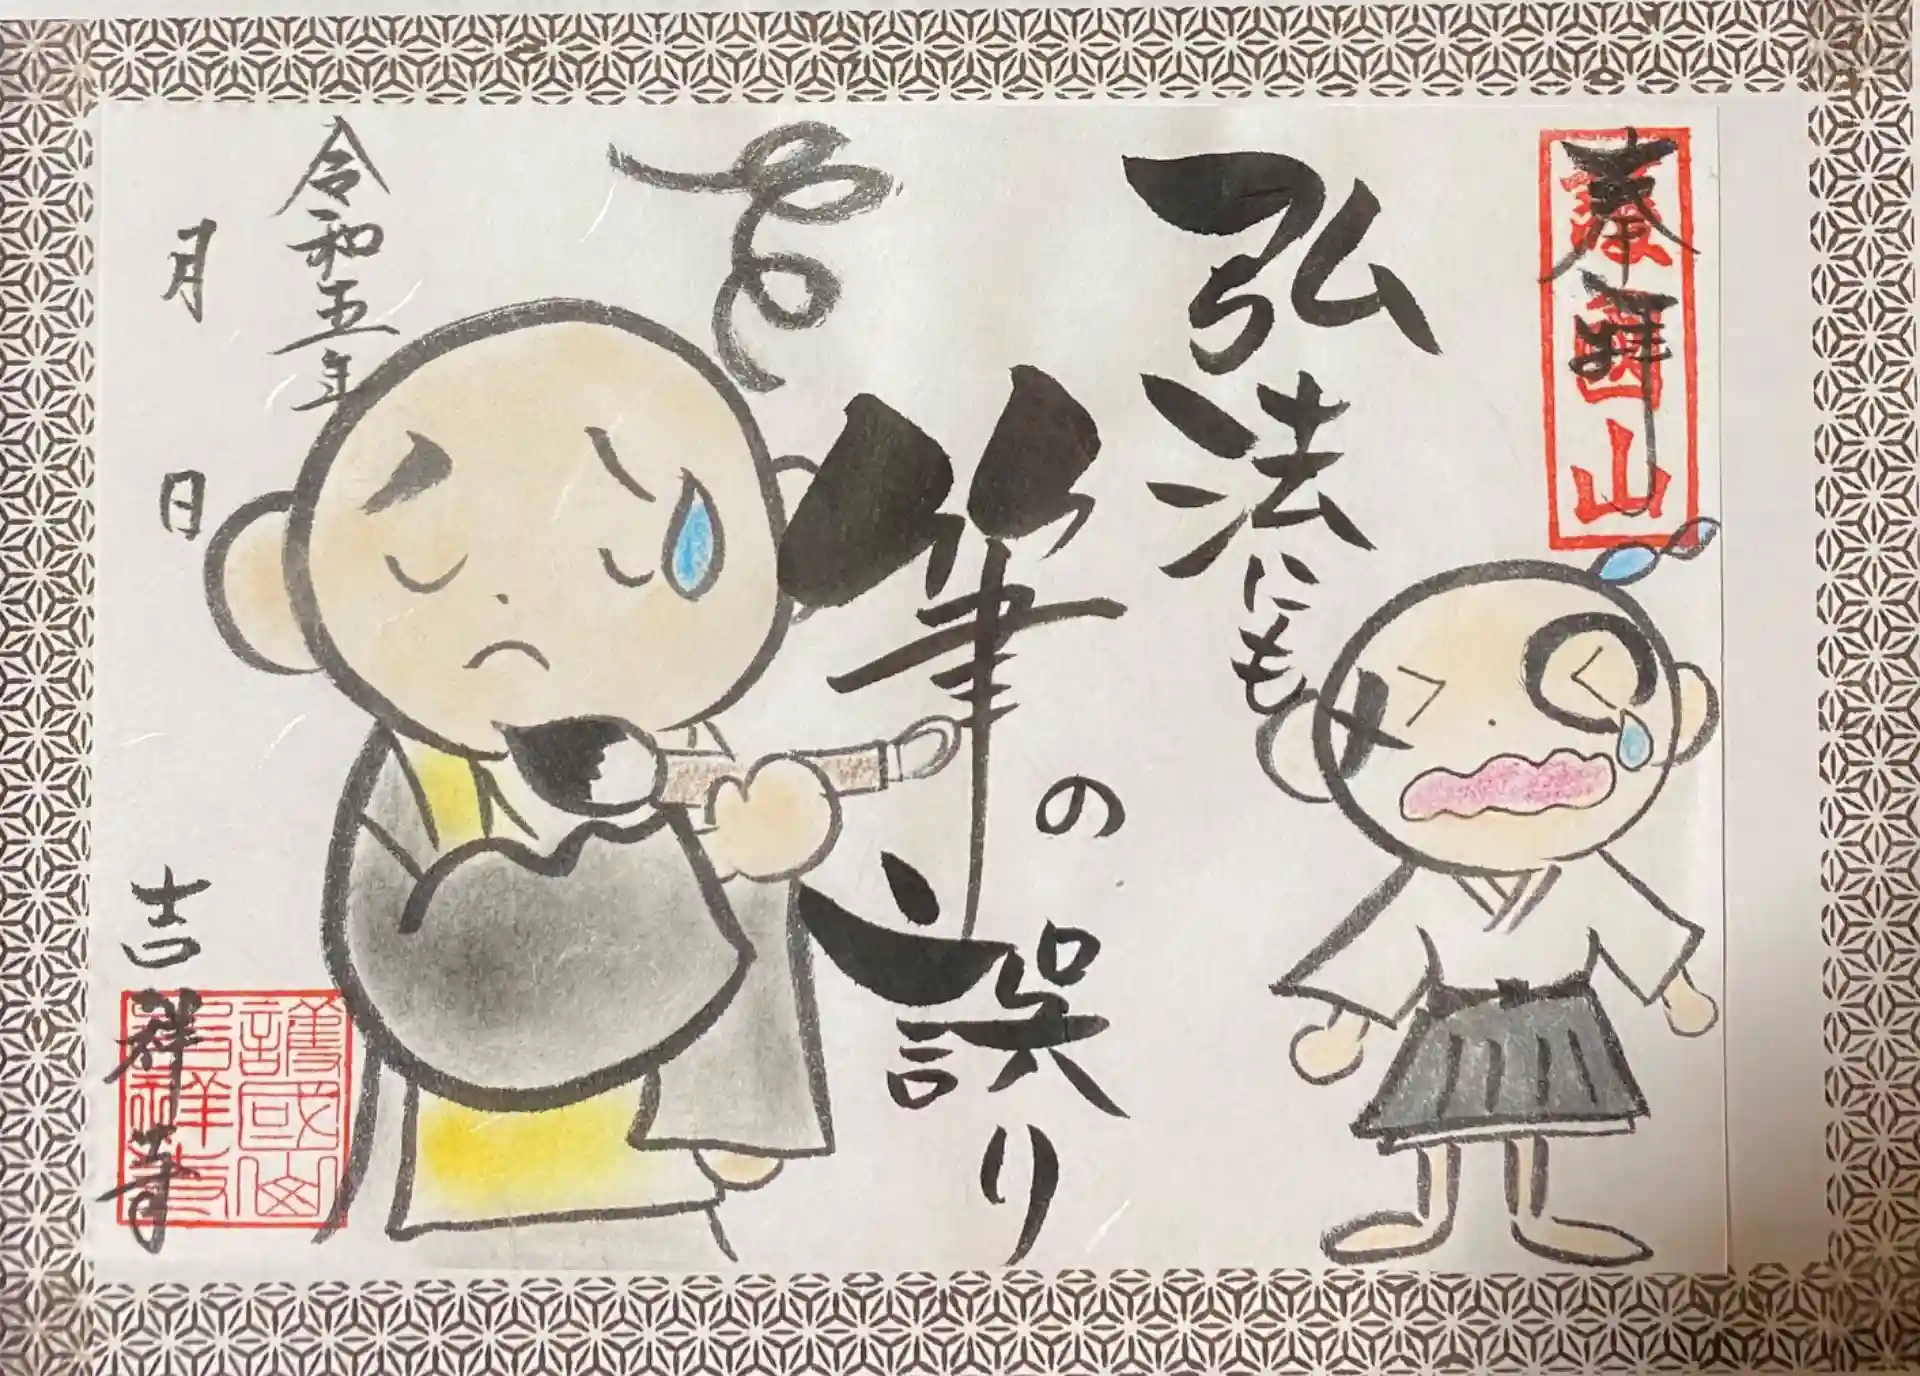 奉拝
護國山
弘法にも
筆の誤り
令和五年
月 日
吉祥寺
護國山
吉祥寺